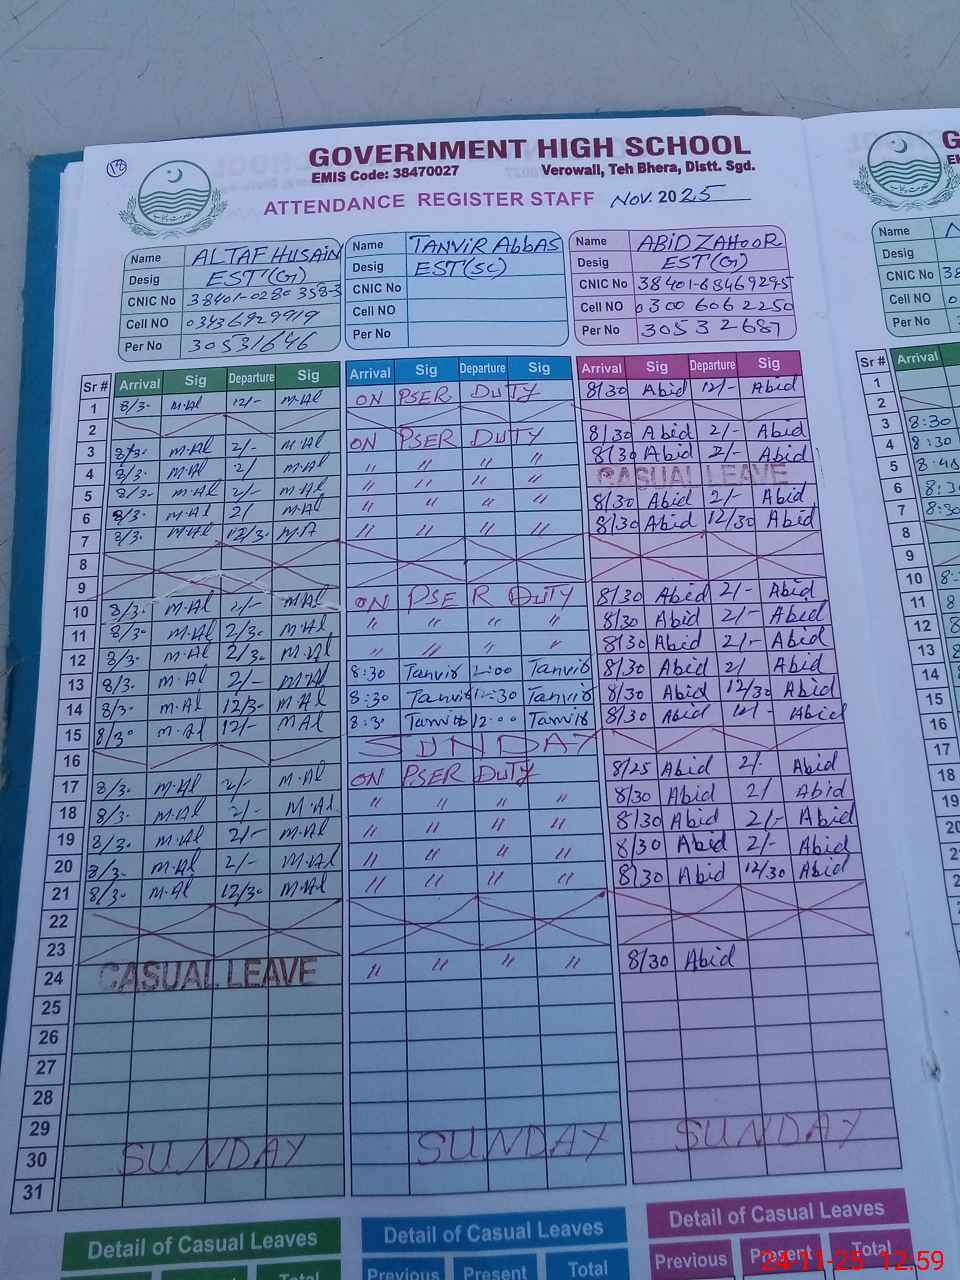 GOVERNMENT HIGH SCHOOL
EMIS Code: 38470027 Verowall, Teh Bhera, Distt. Sgd.
ATTENDANCE REGISTER STAFF Nov. 2025
Name ALTAF HUSAIN Name TANVIR AbbAS Name ABiD ZAHOOR
Desig EST(G) Desig EST(SC) Desig EST(G)
CNIC No 38401-0280358-3 CNIC No CNIC No 38401-6846929-5
Cell NO 03436929919 Cell NO Cell NO 0300 606 2250
Per No 30531646 Per No Per No 30532687
Sr # Arrival Sig Departure Sig Arrival Sig Departure Sig Arrival Sig Departure Sig Sr # Arrival
1 8/3- M.Al 12/- M.Al ON PSER DUTY 8/30 Abid 12/- Abid 1
2 2
3 8/3- M.Al 2/- M.Al ON PSER DUTY 8/30 Abid 2/- Abid 3 8:30
4 8/3- M.Al 2/ M.Al " " " " 8/30 Abid 2/- Abid 4 8:30
5 8/3- M.Al 2/- M.Al " " " " CASUAL LEAVE 5
6 8/3- M.Al 2/ M.Al " " " " 8/30 Abid 2/- Abid 6
7 8/3- M.Al 12/3- " " " " 8/30 Abid 12/30 Abid 7
8 8
9 9
10 8/3- M.Al 2/- M.Al ON PSER DUTY 8/30 Abid 2/- Abid 10
11 8/3- M.Al 2/3- M.Al " " " " 8/30 Abid 2/- Abid 11
12 8/3- M.Al 2/3- M.Al " " " " 8/30 Abid 2/- Abid 12
13 8/3- M.Al 2/- M.Al 8:30 Tanvir 2:00 Tanvir 8/30 Abid 2/ Abid 13
14 8/3- M.Al 12/3- M.Al 8:30 Tanvir 12:30 Tanvir 8/30 Abid 12/30 Abid 14
15 8/30 M.Al 12/- M.Al 8:3 Tanvir 12:00 Tanvir 8/30 Abid 12/- Abid 15
16 SUNDAY 16
17 8/3- M.Al 2/- M.Al ON PSER DUTY 8/25 Abid 2/- Abid 17
18 8/3- M.Al 2/- M.Al " " " " 8/30 Abid 2/ Abid 18
19 8/3- M.Al 2/- M.Al " " " " 8/30 Abid 2/- Abid 19
20 8/3- M.Al 2/- M.Al " " " " 8/30 Abid 2/- Abid 20
21 8/30 M.Al 12/30 M.Al " " " " 8/30 Abid 12/30 Abid
22
23
24 CASUAL LEAVE " " " " 8/30 Abid
25
26
27
28
29
30 SUNDAY SUNDAY SUNDAY
31
Detail of Casual Leaves Detail of Casual Leaves Detail of Casual Leaves
Total Previous Present Total Previous Present Total
24-11-25 12.59